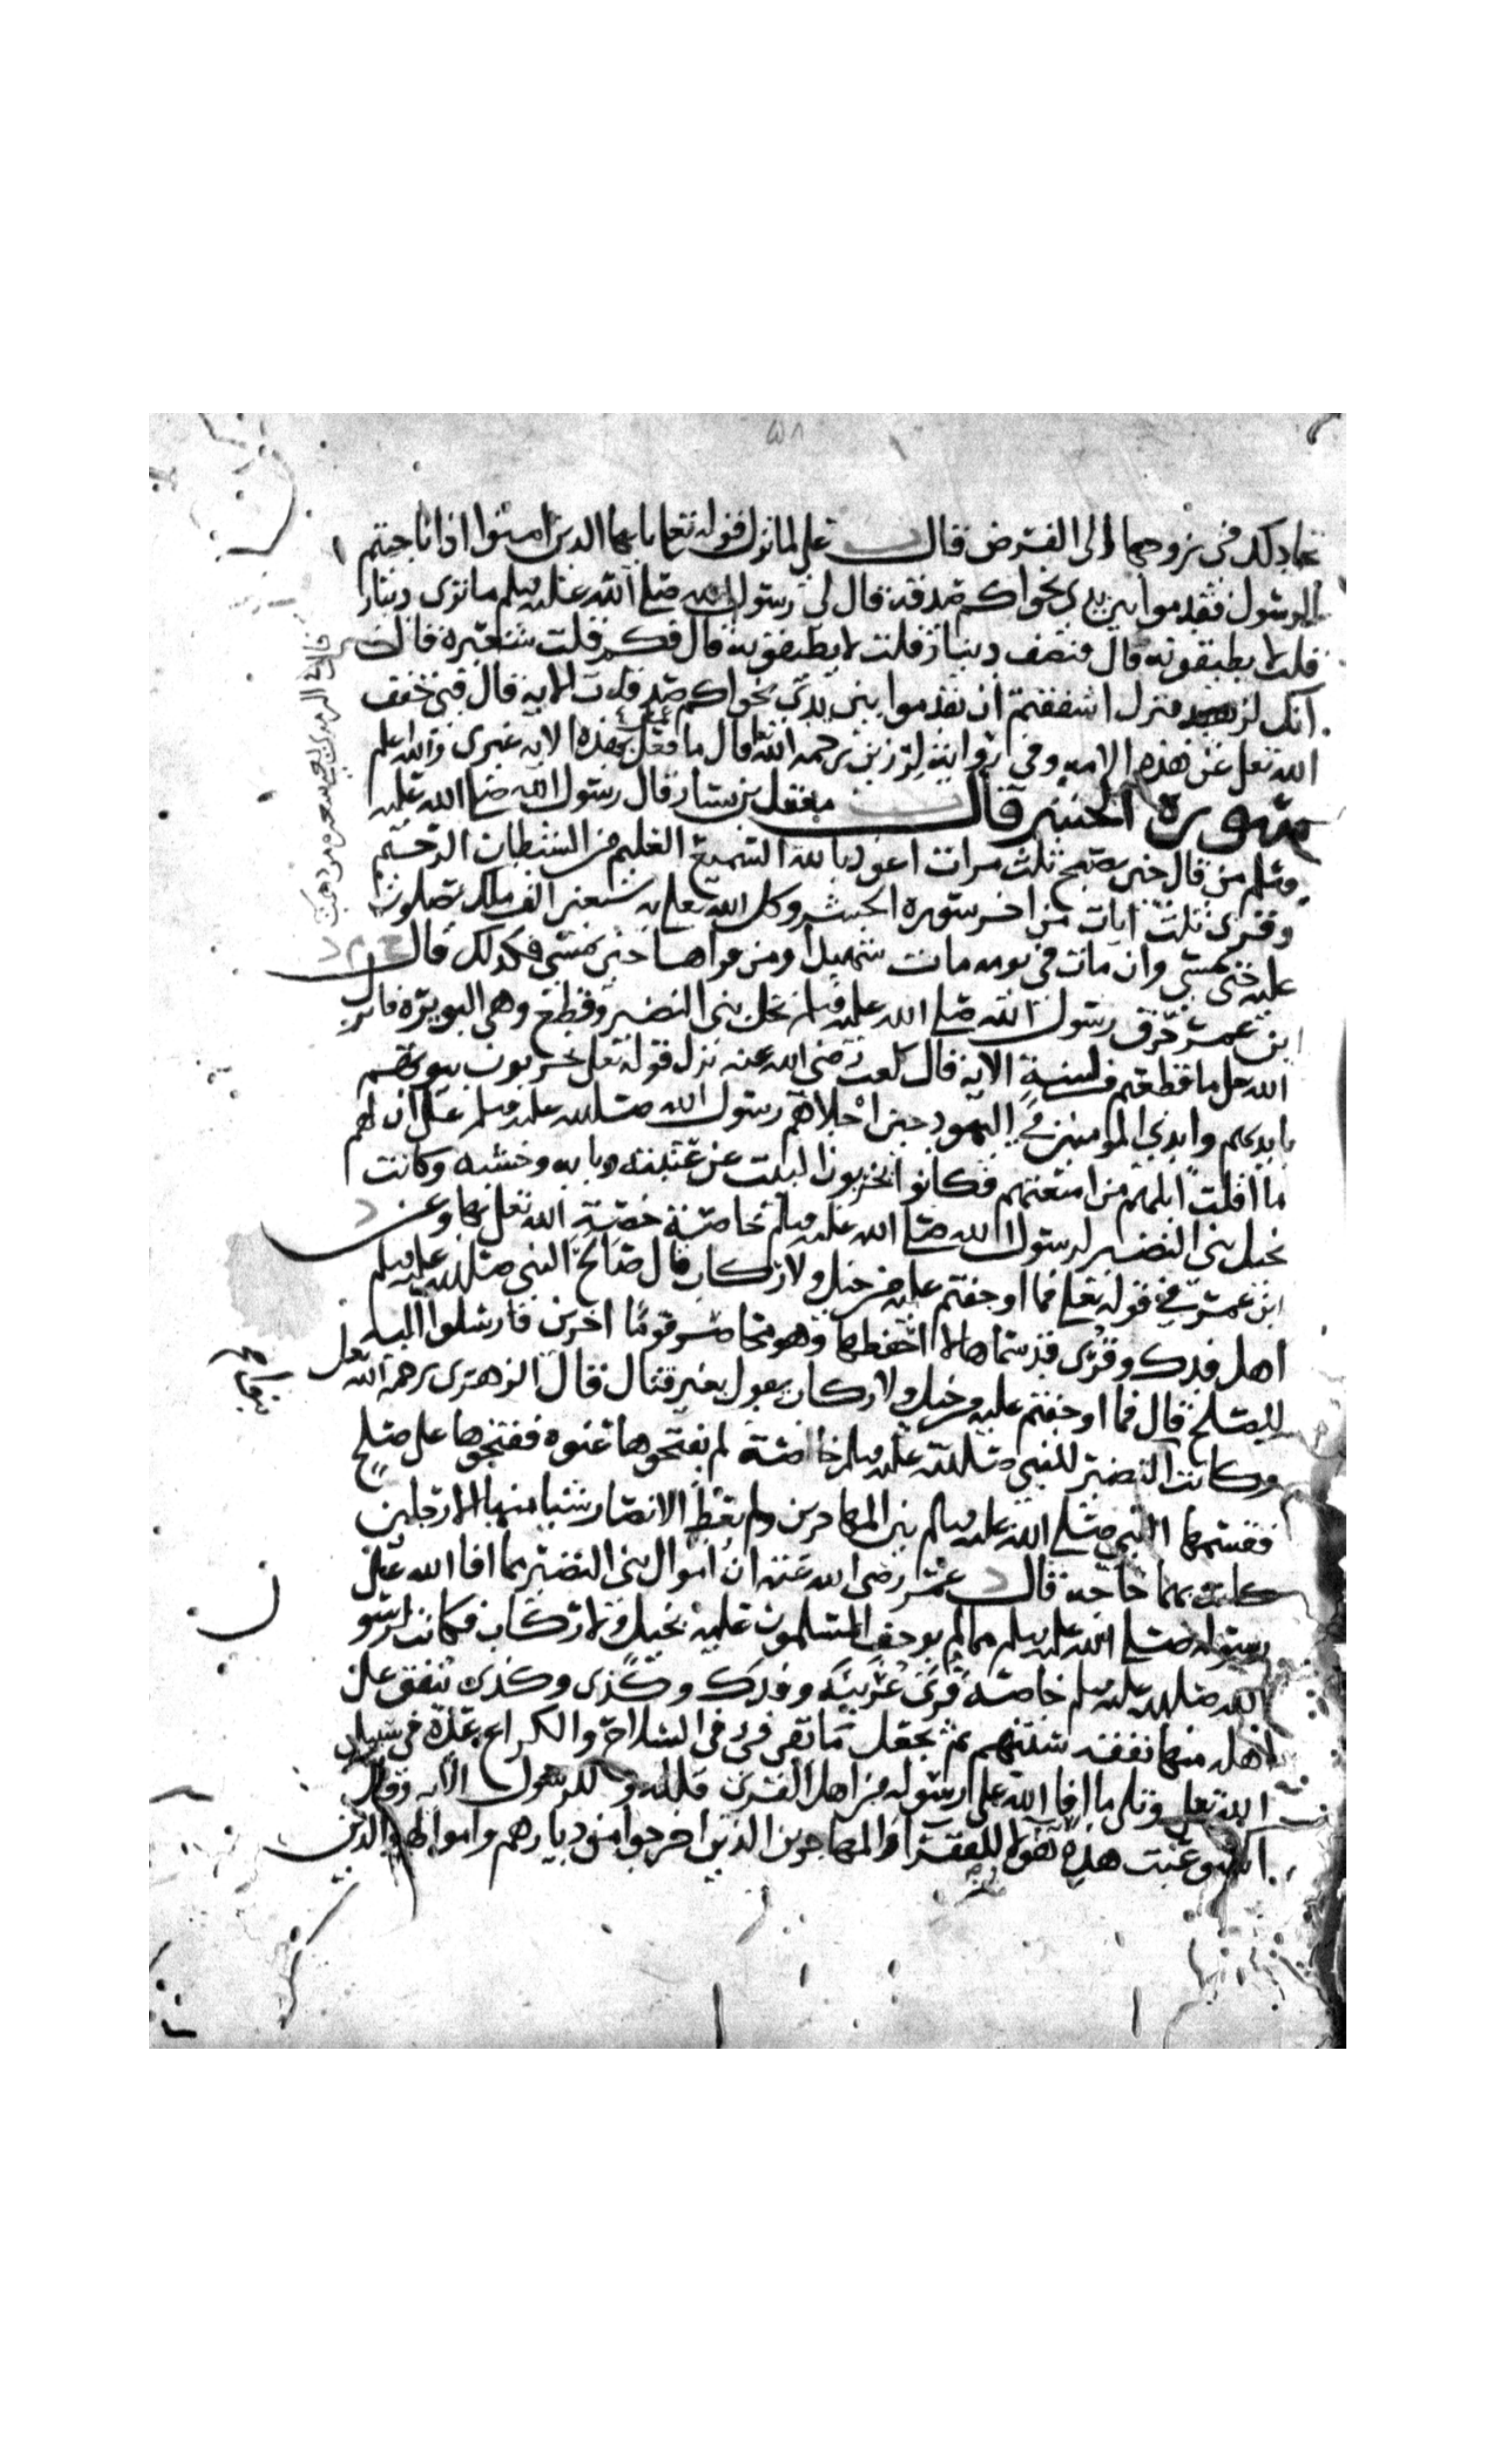 ٥٨
كد في زوجها الى الفرض قال على لما نزل قوله تعلى يا يها الذين امنوا اذا ناجيتم
الرسول فقدموا بين يدي نجواكم صدقة قال لي رسول الله صلى الله عليه وسلم ما ترى دينار
قلت لا يطيقونه قال فنصف دينار قلت لا يطيقونه قال فكم قلت شعيرة قال
انك لزهيد فنزل اشفقتم ان تقدموا بين يدي نجواكم صدقات الايه قال فبي خفف
الله تعلى عن هذه الامه وفي رواية لرزين رحمه الله قال ما فعل بهذه الايه غيري والله اعلم
سورة الحشر قال معقل بن يسار قال رسول الله صلى الله عليه
وسلم من قال حين يصبح ثلث مرات اعوذ بالله السميع العليم من الشيطان الرجيم
وقرى ثلث ايات من اخر سورة الحشر وكل الله تعلى به سبعين الف ملك يصلون
عليه حتى يمسي وان مات في يومه مات شهيدا ومن قراها حين يمسي فكذلك قال
بن عمر حرق رسول الله صلى الله عليه وسلم نخل بني النضير وقطع وهي البويرة فانزل
الله عل ما قطعتم من لينة الايه قال كعب رضي الله عنه نزل قوله تعلى يخربون بيوتهم
بايديهم وايدي المومنين في اليهود حين اجلاهم رسول الله صلى الله عليه وسلم على ان لهم
ما اقلت ابلهم من امتعتهم فكانوا يخربون البيت عن عتبته وبابه وخشبه وكانت
نخيل بني النضير لرسول الله صلى الله عليه وسلم خاصة خصه الله تعلى بها وعن
ابن عمر في قوله تعلى فما اوجفتم عليه من خيل ولا ركاب قال صالح النبي صلى الله عليه وسلم
اهل فدك وقرى قد سماها لا احفظها وهو محاصر قوما اخرين فارسلوا اليه
للصلح قال فما اوجفتم عليه من خيل ولا ركاب يقول بغير قتال قال الزهري رحمه الله تعلى
وكانت النضير للنبي صلى الله عليه وسلم خالصة لم يفتحوها عنوة ففتحوها على صلح
فقسمها النبي صلى الله عليه وسلم بين المهاجرين ولم يعط الانصار شيا منها الا رجلين
كانت بهما حاجة قال عمر رضي الله عنه ان اموال بني النضير مما افا الله على
رسوله صلى الله عليه وسلم مما لم يوجف المسلمون عليه بخيل ولا ركاب فكانت لرسول
الله صلى الله عليه وسلم خاصة قرى عرينة وفدك وكذى وكذى ينفق على
اهله منها نفقة سنتهم ثم يجعل ما بقي في السلاح والكراع عدة في سبيل
الله تعلى وتلى ما افا الله على رسوله من اهل القرى فلله وللرسول الايه وقال
استوعبت هذه هولا للفقرا والمهاجرين الذين اخرجوا من ديارهم واموالهم والذين